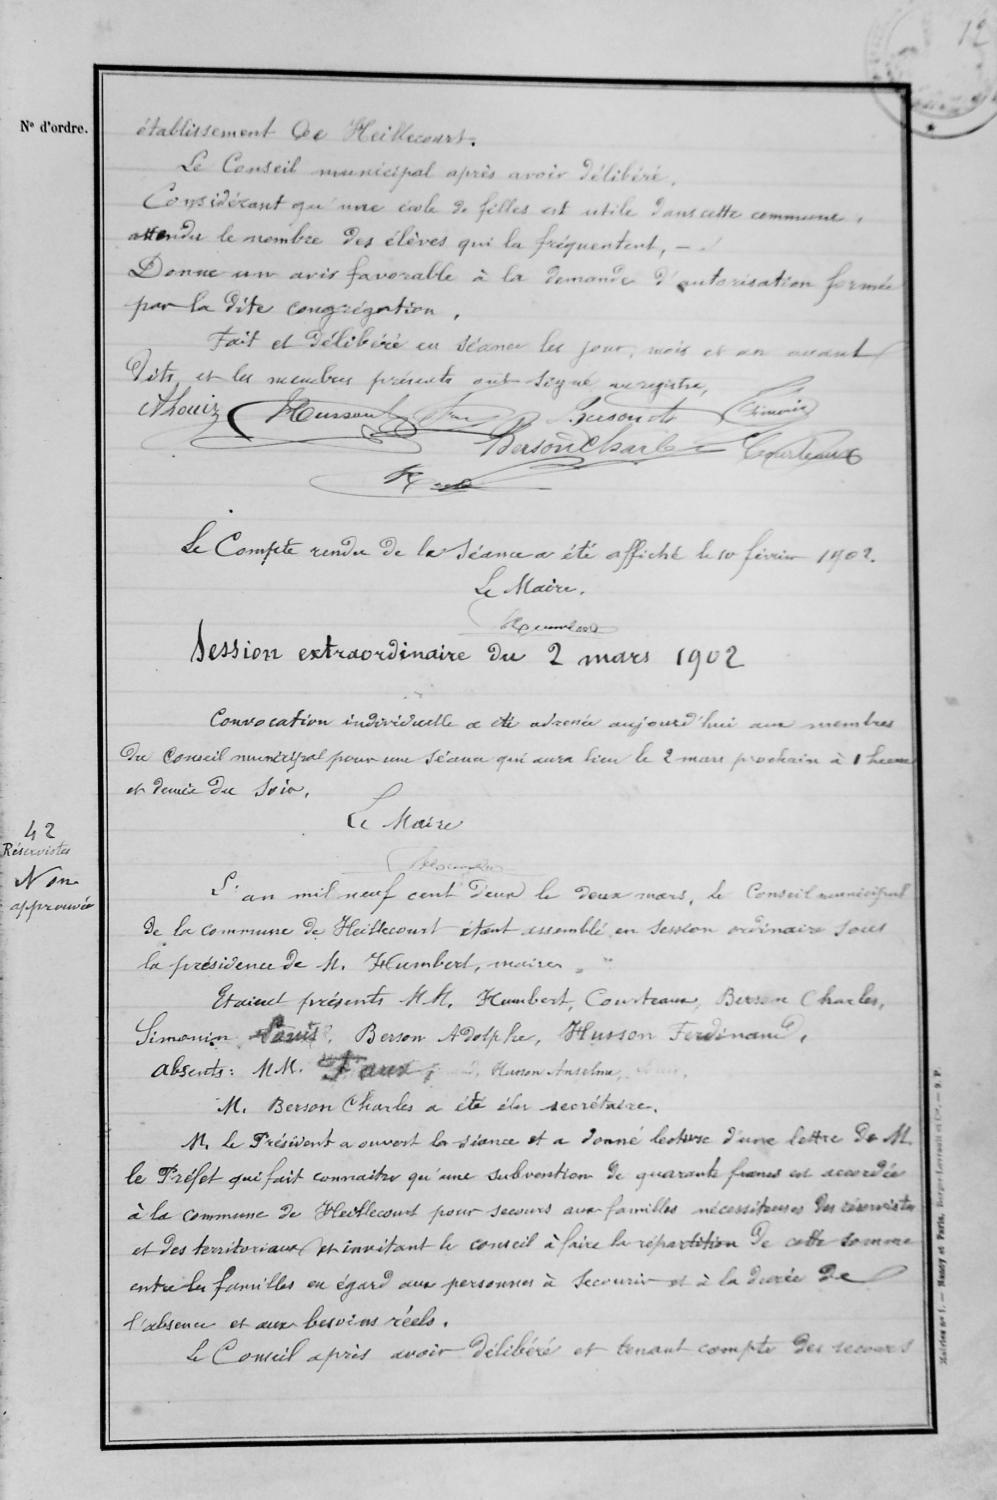 12
Nº d'ordre.
établissement de Heillecourt.
Le Conseil municipal après avoir délibéré,
Considérant qu'une école de filles est utile dans cette commune,
attendu le nombre des élèves qui la fréquentent, –
Donne un avis favorable à la demande d'autorisation formée
par la dite congrégation.
Fait et délibéré en séance les jour, mois et an avant
dits, et les membres présents ont signé au registre,
Husson
Berson Charles Courteaux
Le Compte rendu de la séance a été affiché le 10 février 1902.
Le Maire.
Humbert
Session extraordinaire du 2 mars 1902
Convocation individuelle a été adressée aujourd'hui aux membres
du Conseil municipal pour une séance qui aura lieu le 2 mars prochain à 1 heure
et demie du soir.
Le Maire
Humbert
42
Réservistes
Non
approuvée
L'an mil neuf cent deux le deux mars, le Conseil municipal
de la commune de Heillecourt étant assemblé en session ordinaire sous
la présidence de M. Humbert, maire.
Etaient présents MM. Humbert, Courteaux, Berson Charles,
Simonin Louis, Berson Adolphe, Husson Ferdinand,
absents: MM. Faux, Husson Anselme,
M. Berson Charles a été élu secrétaire.
M. le Président a ouvert la séance et a donné lecture d'une lettre de M.
le Préfet qui fait connaitre qu'une subvention de quarante francs est accordée
à la commune de Heillecourt pour secours aux familles nécessiteuses des réservistes
et des territoriaux et invitant le conseil à faire la répartition de cette somme
entre les familles eu égard aux personnes à secourir et à la durée de
l'absence et aux besoins réels.
Le Conseil après avoir délibéré et tenant compte des secours
Mairies nº 1. — Nancy et Paris, Berger-Levrault et Cie. — 9. P.